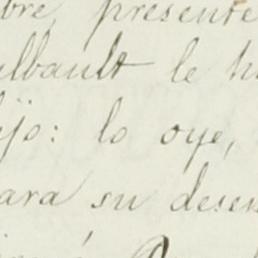 bre, presente
ulbault le h
ijo: lo oye,
ara su desen